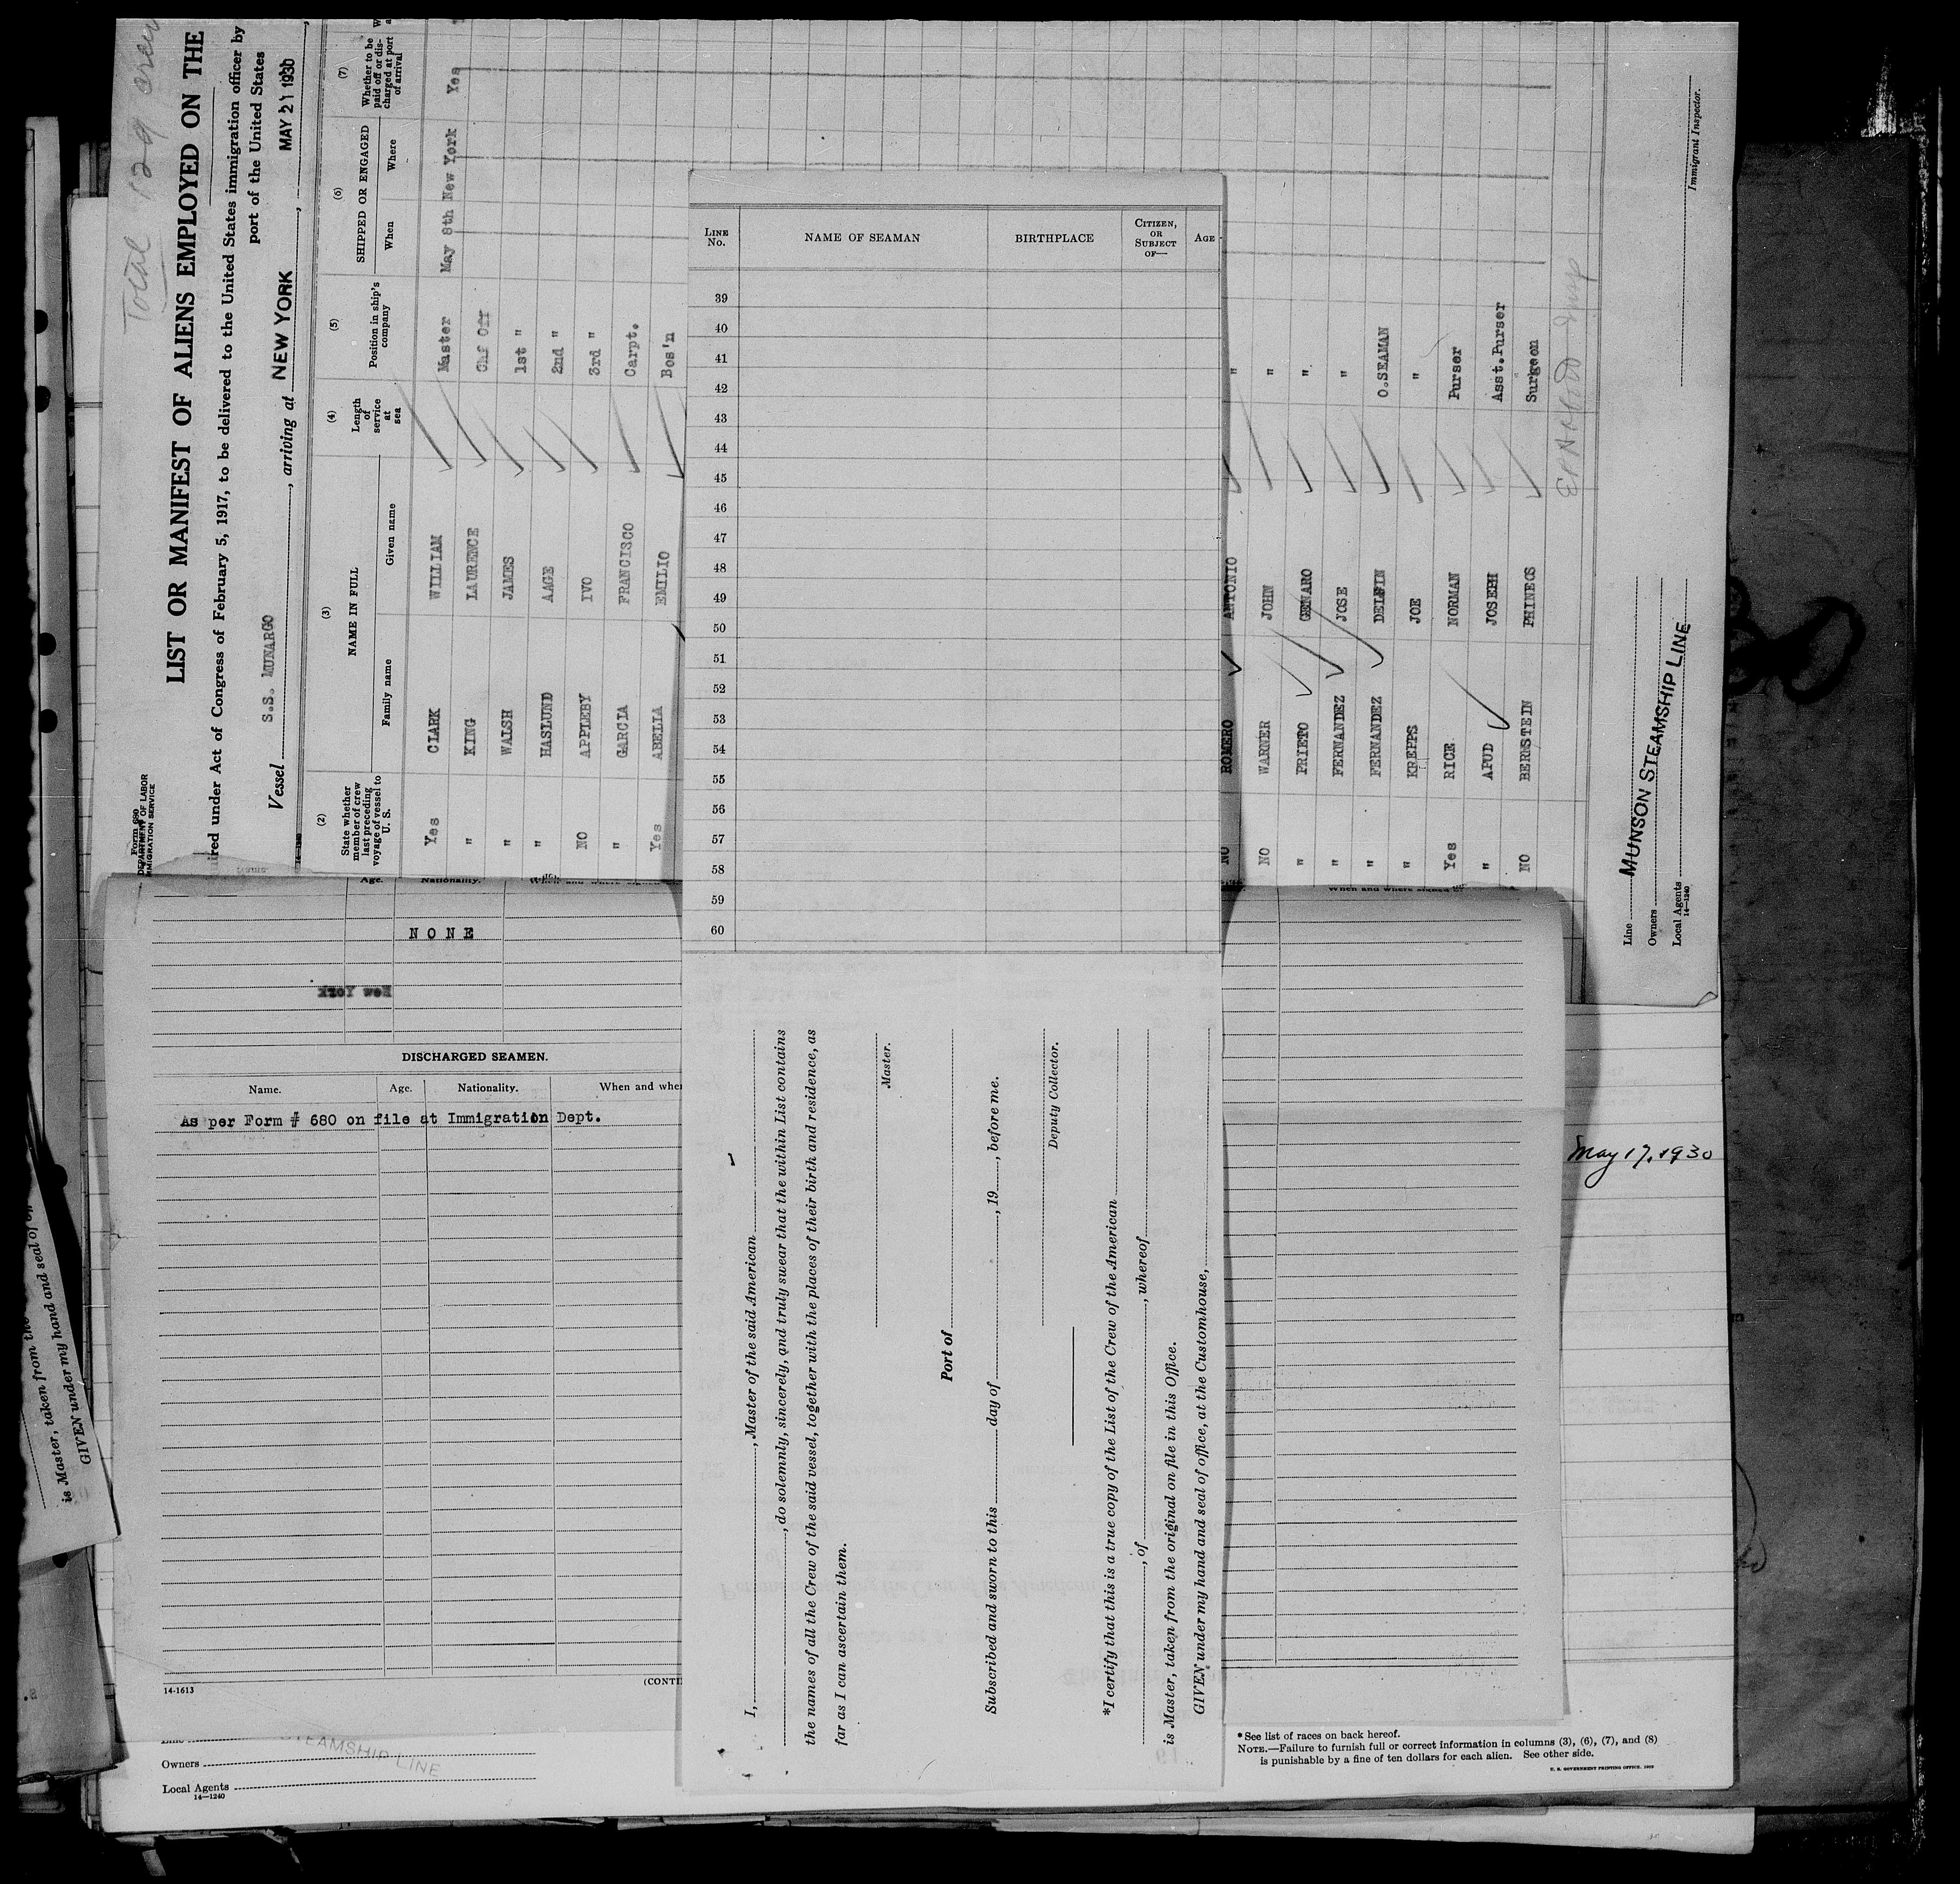 Total 129 crew
LIST OR MANIFEST OF ALIENS EMPLOYED ON THE
ired under Act of Congress of February 5, 1917, to be delivered to the United States immigration officer by
port of the United States
Vessel S.S. MUNARGO, arriving at NEW YORK, MAY 21 1930,
Form 680
DEPARTMENT OF LABOR
IMMIGRATION SERVICE
(2) (3) (4) (5) (6) (7)
State whether member of crew last preceding voyage of vessel to U. S.
NAME IN FULL
Family name Given name
Length of service at sea
Position in ship's company
SHIPPED OR ENGAGED
When Where
Whether to be paid off or discharged at port of arrival
Yes CLARK WILLIAM Master May 8th New York Yes
" KING LAURENCE Chf Off
" WALSH JAMES 1st "
" HASLUND AAGE 2nd "
NO APPLEBY IVO 3rd "
" GARCIA FRANCISCO Carpt.
Yes ABELIA EMILIO Bos'n
NO ROMERO ANTONIO "
NO WARNER JOHN "
" PRIETO GENARO "
" FERNANDEZ JOSE "
" FERNANDEZ DELFIN O.SEAMAN
" KREPPS JOE "
Yes RICE NORMAN Purser
" APUD JOSEPH Asst.Purser
NO BERNSTEIN PHINEOS Surgeon
Immigrant Inspector.
Line MUNSON STEAMSHIP LINE
Owners
Local Agents
14—1240
LINE No. NAME OF SEAMAN BIRTHPLACE CITIZEN, OR SUBJECT OF— AGE
39
40
41
42
43
44
45
46
47
48
49
50
51
52
53
54
55
56
57
58
59
60
I, , Master of the said American
, do solemnly, sincerely, and truly swear that the within List contains
the names of all the Crew of the said vessel, together with the places of their birth and residence, as
far as I can ascertain them.
Master.
Port of
Subscribed and sworn to this day of , 19 , before me.
Deputy Collector.
*I certify that this is a true copy of the List of the Crew of the American
, of , whereof
is Master, taken from the original on file in this Office.
GIVEN under my hand and seal of office, at the Customhouse,
Age. Nationality. When and where signed
When and where signed
NONE
New York
DISCHARGED SEAMEN.
Name. Age. Nationality. When and whe
As per Form # 680 on file at Immigration Dept.
14-1613
(CONTI
May 17, 1930
is Master, taken from the
GIVEN under my hand and seal of of
Line
STEAMSHIP LINE
Owners
Local Agents
14—1240
* See list of races on back hereof.
NOTE.—Failure to furnish full or correct information in columns (3), (6), (7), and (8)
is punishable by a fine of ten dollars for each alien. See other side.
U. S. GOVERNMENT PRINTING OFFICE